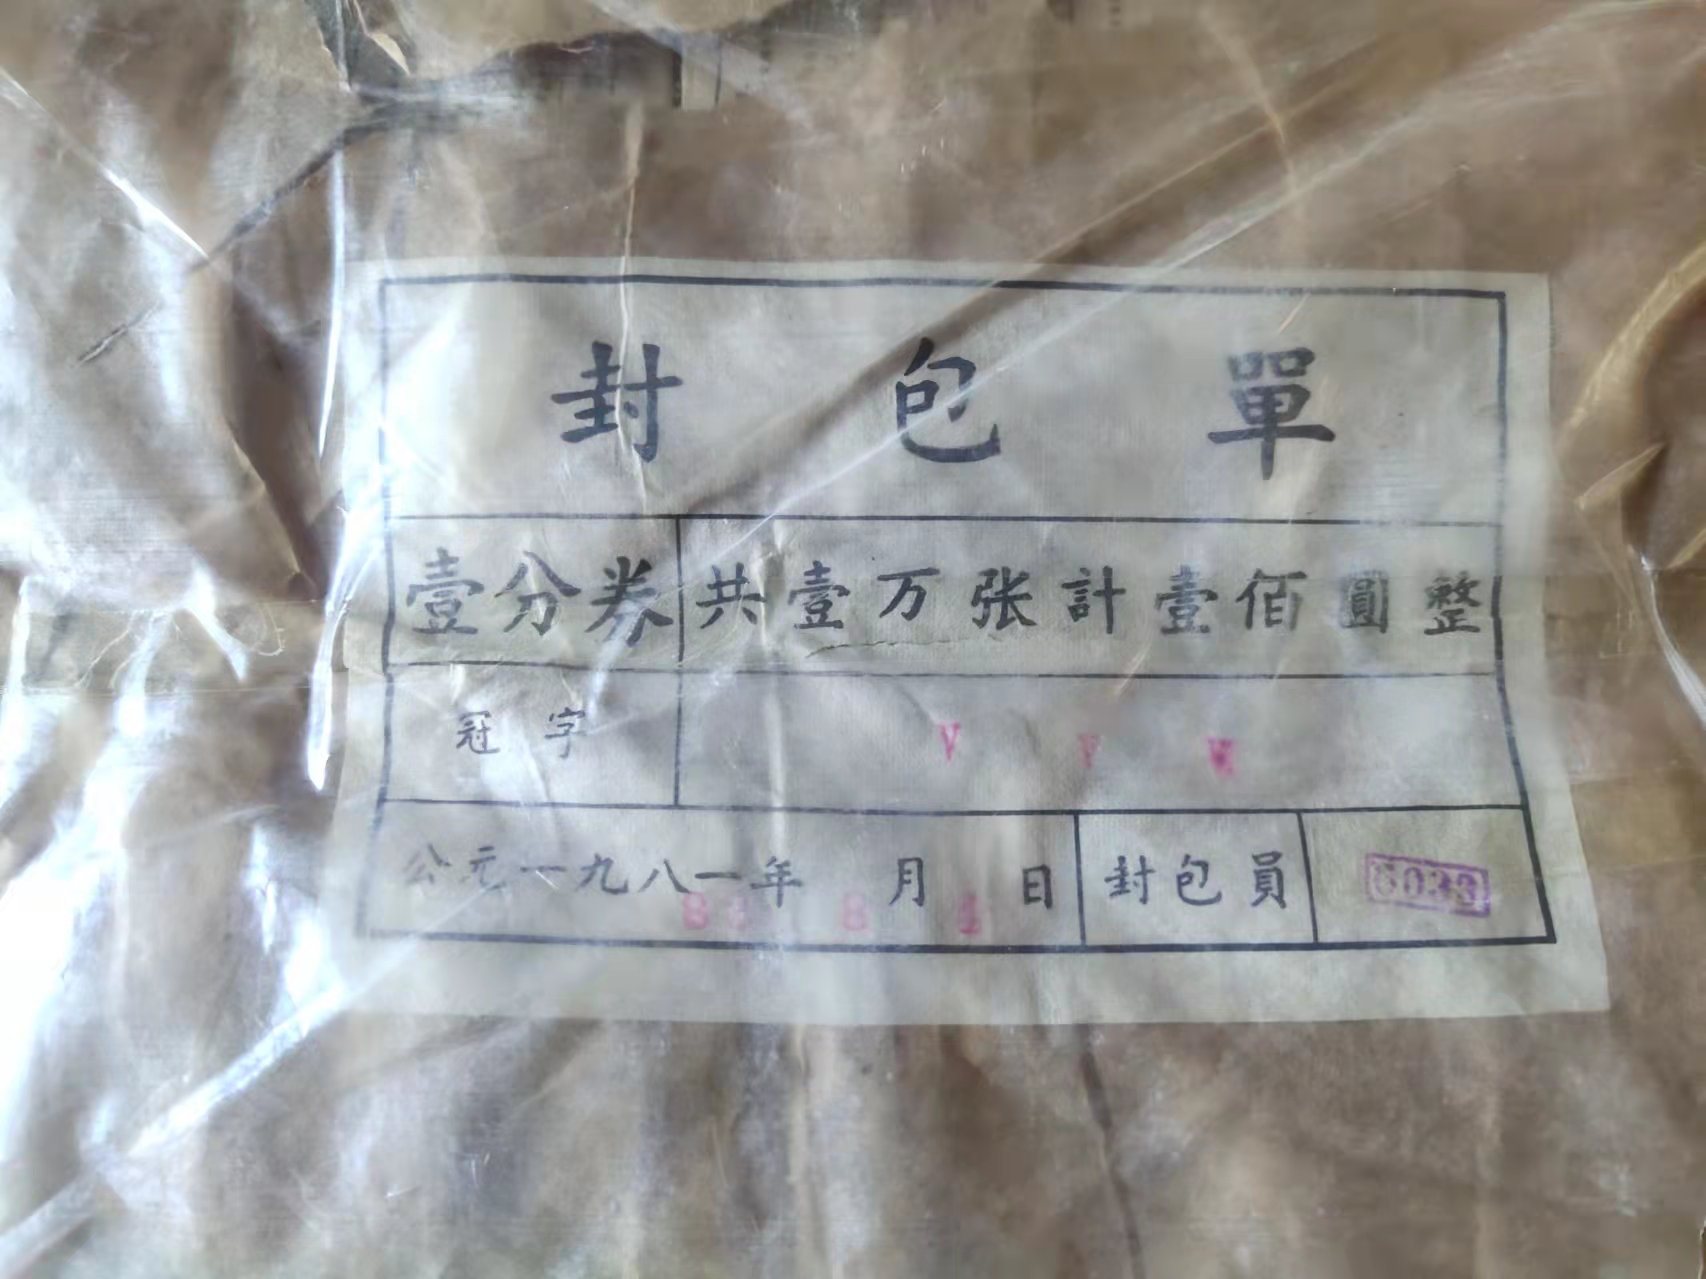 封包單
壹分券 共壹万张計壹佰圓整
冠字 V Y
公元一九八一年 月 日 封包員
8 8